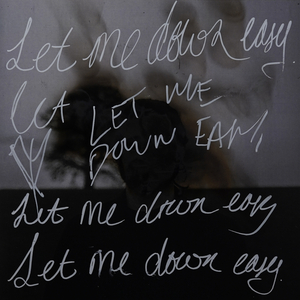 Let me down easy.
Let LET ME
DOWN EASY
Let me down easy
Let me down easy.